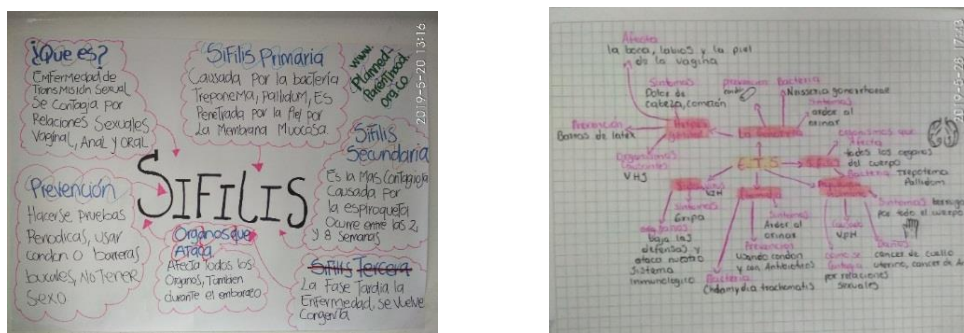 ¿Que es?
Enfermedad de
Transmisión Sexual
Se Contagia por
Relaciones Sexuales
Vaginal, Anal y oral
Sifilis Primaria
Causada por la bacteria
Treponema, pallidum, Es
Penetrada por la Piel por
La Membrana Muocosa.
www.
Planned
Parenthood
org.co
2019-5-20 13:16
Sifilis
Secundaria
Es la Mas Contagiosa
Causada por
la espiroqueta
Ocurre entre las 2
y 8 semanas
SIFILIS
Prevención
Hacerse pruebas
Periodicas, usar
condon o barreras
bucales, No Tener
Sexo
Organos que
Ataca
Afecta Todos los
Organos, Tambien
durante el embarazo
Sifilis Tercera
La Fase Tardia la
Enfermedad, se Vuelve
Congenita
Afecta
la boca, labios y la piel
de la vagina
Sintomas
Dolor de
cabeza, comezón
prevencion
Bacteria
Neisseria gonorrhoeae
Sintomas
arder al
orinar
Prevención
Barras de latex
Herpes
La Gonorrea
Organismos
VHS
E.T.S
organismos que
Afecta
todos los organos
del cuerpo
Bacteria treptoema
Pallidum
VIH
Sintomas
Gripa
baja las
defensas y
ataca nuestro
Sistema
Inmunologico
Sintomas
Arder al
orinar
Prevencion
Usando condon
y con Antibioticos
Bacteria
Chdamydia trachomatis
Causado
VPH
como se
Contagia
por relaciones
sexuales
Sintomas
por todo el cuerpo
Daños
cancer de cuello
uterino, cancer de
2019-5-26 17:43